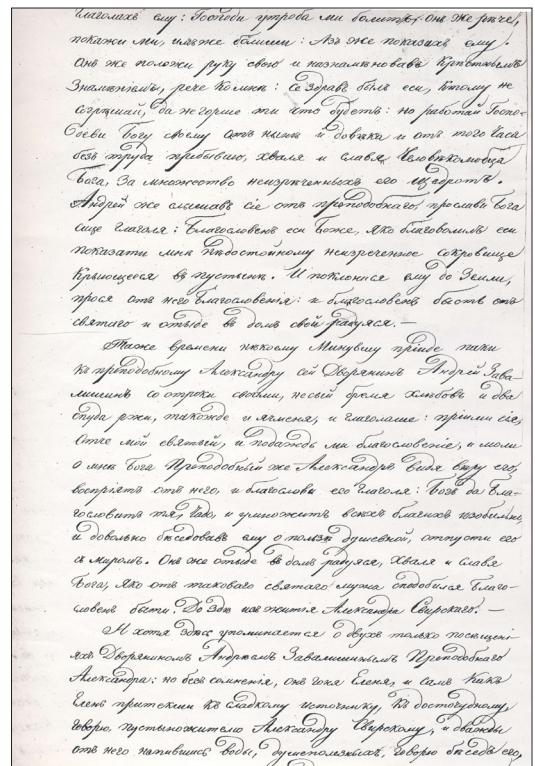 глаголахъ ему: Господи утроба ми болитъ; онъ же рече,
покажи ми, идѣже болиши: Азъ же показахъ ему.
Онъ же положи руку свою и назнаменовавъ крестнымъ
знаменіемъ, рече ко мнѣ: се здравъ былъ еси, ктому не
согрѣшай, да не горше ти что будетъ: но работай Госпо-
деви Богу своему отъ нынѣ и до вѣка и отъ того часа
безъ труда пребываю, хваля и славя Человѣколюбца
Бога, за множество неизреченныхъ его щедротъ.
Андрей же слышавъ сіе отъ преподобнаго, прослави Бога
сице глаголя: Благословенъ еси Боже, яко благоволилъ еси
показати мнѣ недостойному неизреченное сокровище
крыющееся въ пустынѣ. И поклонися ему до земли,
прося отъ него благословенія: и благословенъ бысть отъ
святаго и отыде въ домъ свой радуяся. —
Таже времени нѣкоему минувшу пріиде паки
къ преподобному Александру сей Дворянинъ Андрей Зава-
лишинъ со отроки своими, несый бремя хлѣбовъ и два
спуда ржи, такожде и ячменя, и глаголаше: пріими сія,
Отче мой святый, и подаждь ми благословеніе, и моли
о мнѣ Бога Преподобный же Александръ видя вѣру его,
воспріятъ отъ него, и благослови его глаголя: Богъ да бла-
гословитъ тя, чадо, и умножитъ всѣхъ благихъ изобиліе,
и довольно бесѣдовавъ ему о пользѣ душевной, отпусти его
съ миромъ. Онъ же отыде въ домъ радуяся, хваля и славя
Бога, яко отъ таковаго святаго мужа сподобился благо-
словенъ быти. До здѣ изъ житія Александра Свирскаго. —
И хотя здѣсь упоминается о двухъ только посѣщені-
яхъ Дворяниномъ Андреемъ Завалишинымъ Преподобнаго
Александра: но безъ сомненія, онъ гоня Еленя, и самъ какъ
Елень притекши къ сладкому источнику, къ досточудному,
говорю, пустынножителю Александру Свирскому, и дважды
отъ него напившись воды, душеполезныхъ, говорю бесѣдъ его,